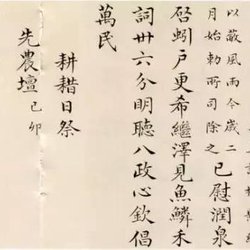 以蔽風雨今歲二
月始勅所司除之
已慰潤泉
启蚓戶更希繼澤見魚鱗禾
詞卅六分明聽八政心欽倡
萬民
耕耤日祭
先農壇 己卯